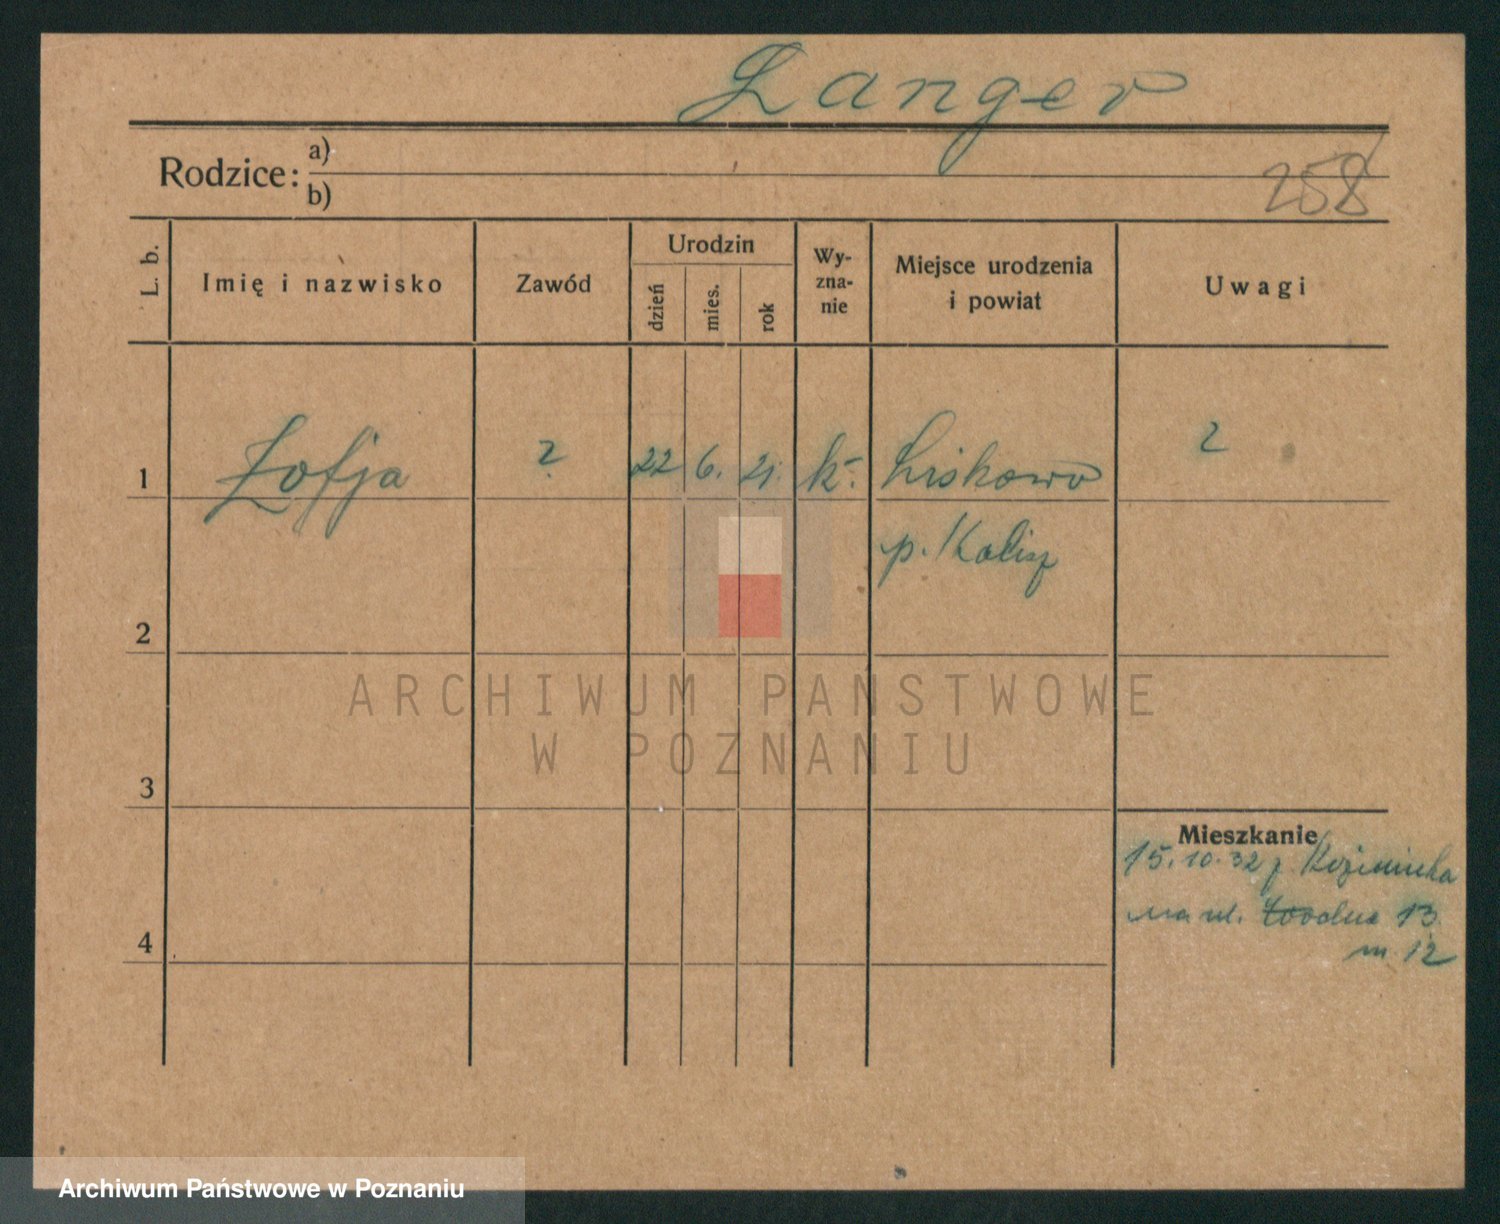 Langer
Rodzice: a)
b)
258
L. b. Imię i nazwisko Zawód Urodzin dzień mies. rok Wy-zna-nie Miejsce urodzenia i powiat Uwagi
1 Zofja ? 22 6. 21. k. Liskowo ?
p. Kalisz
2
ARCHIWUM PAŃSTWOWE
W POZNANIU
3
Mieszkanie
15.10.32 z
na ul. Wodna 13
4
m. 12
Archiwum Państwowe w Poznaniu